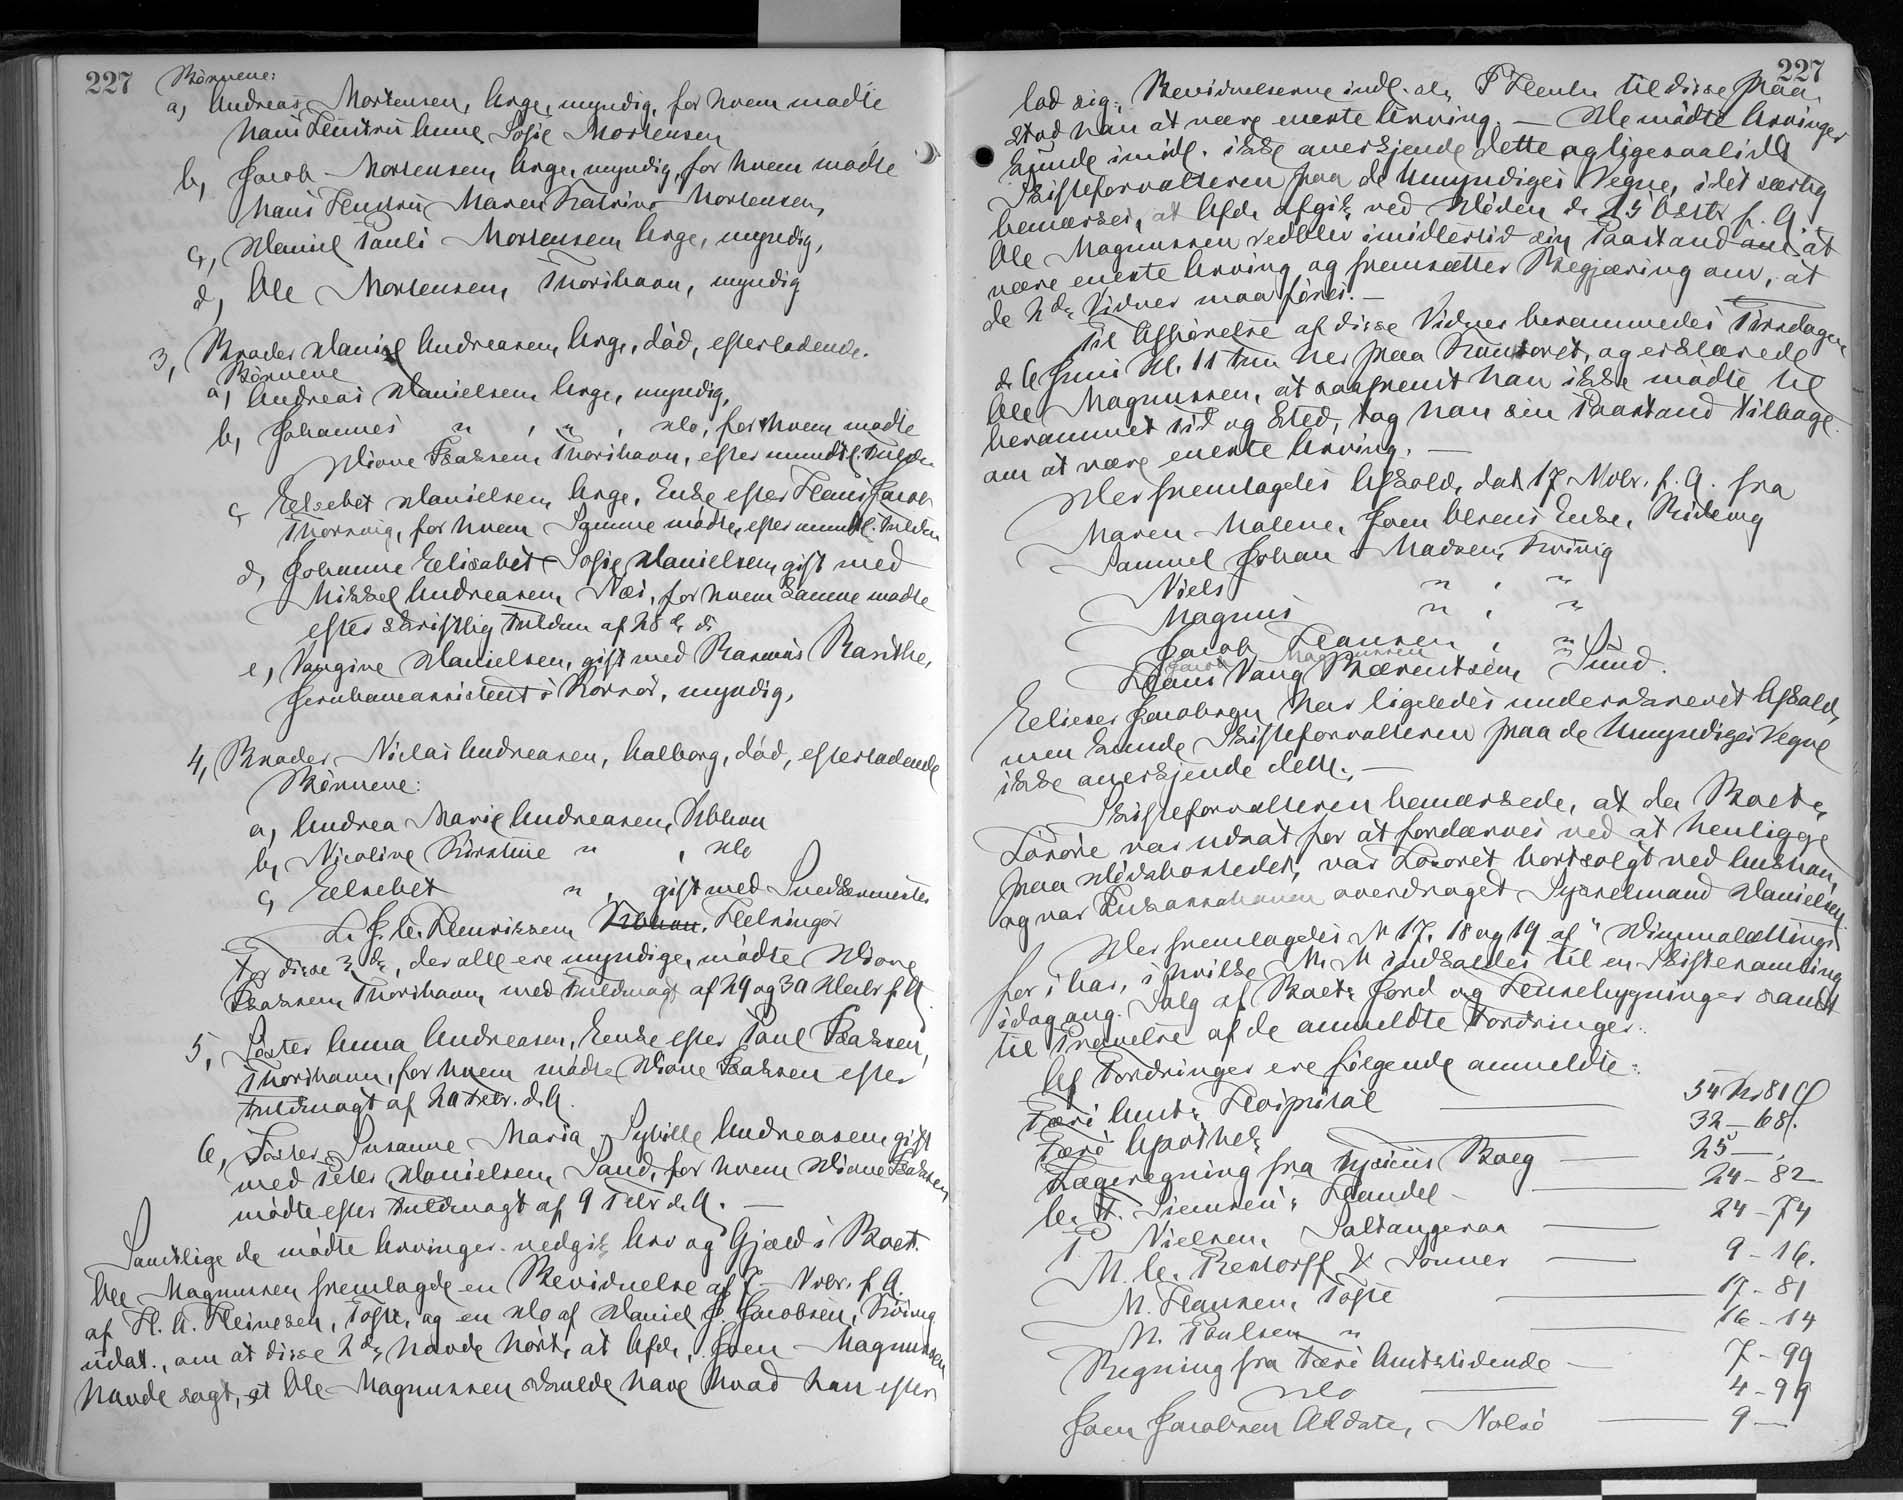 227
Børnene:
a, Andreas Mortensen, Arge, myndig, for hvem mødte
hans Hustru Anne Sofie Mortensen
b, Jacob Mortensen, Arge, myndig, for hvem mødte
hans Hustru Maren Katrine Mortensen,
c, Daniel Pauli Mortensen, Arge, myndig,
d, Ole Mortensen, Thorshavn, myndig
3, Broder Daniel Andreasen, Arge, død, efterladende.
Børnene
a, Andreas Danielsen, Arge, myndig,
b, Johannes " , " , do, for hvem mødte
Dione Isaksen, Thorshavn, efter mundtl. Fuldm
c, Elsebet Danielsen, Arge, Enke efter Hans Jacob
Thorsvig, for hvem Samme mødte, efter mundtl. Fuldm
d, Johanne Elisabet Sofie Danielsen, gift med
Mikkel Andreasen, Næs, for hvem Samme mødte
efter skriftlig Fuldm af 28 ds ds
e, Vangine Danielsen, gift med Rasmus
Jernbaneassistent i Korsør, myndig,
4, Broder Niclas Andreasen, Aalborg, død, efterladende
Børnene:
a, Andrea Marie Andreasen, Kbhvn
b, Nicoline Kirstine " , do
c, Elsebet " , gift med Snedkermester
L. J. C. Henriksen, Kbhvn. Helsingør
For disse 3 ds, der alle ere myndige, mødte Dione
Isaksen, Thorshavn, med Fuldmagt af 29 og 30 Decbr f. A.
5, Søster Anna Andreasen, Enke efter Poul Isaksen,
Thorshavn, for hvem mødte Dione Isaksen efter
Fuldmagt af 20 Febr. d. A.
6, Søster Susanne Maria Sybille Andreasen, gift
med Peter Danielsen, Sand, for hvem Dione Isaksen
mødte efter Fuldmagt af 9 Febr d. A. —
Samtlige de mødte Arvinger vedgik Arv og Gjæld i Boet.
Ole Magnussen fremlagde en Bevidnelse af 7 Nvbr. f. A.
af H. A. Heinesen, Tofte, og en do af Daniel J. Jacobsen, Kvivig
udat., om at disse 2 de havde hørt, at Afdø, Joen Magnussen
havde sagt, at Ole Magnussen skulde have hvad han efter
227
lod sig. Bevidnelserne indl. als P Henhr til disse paa
stod han at være eneste Arving. — De mødte Arvinger
kunde imidl. ikke anerkjende dette og ligesaalidt
Skifteforvalteren paa de Umyndiges Vegne, idet særlig
bemærkes, at Afdø afgik ved Døden d. 25 Oktbr f. A.
Ole Magnussen vedblev imidlertid sin Paastand om at
være eneste Arving og fremsætter Begjæring om, at
de 2 de Vidner maa føres. —
Til Afhørelse af disse Vidner berammedes Tirsdagen
d. 6 Juni Kl. 11 Fm her paa Kontoret, og erklærede
Ole Magnussen, at saafremt han ikke mødte til
berammet Tid og Sted, tog han sin Paastand tilbage
om at være eneste Arving. —
Der fremlagdes Afkald, dat 17 Nvbr. f. A. fra
Maren Malene, Joen Olsens Enke,
Samuel Johan Madsen, Kvivig
Niels " , "
Magnus " , "
Jacob Hansen , "
Jacob Magnussen "
Hans Vang Bærentsen, Sund.
Elieser Jacobsen har ligeledes underskrevet Afkald,
men kunde Skifteforvalteren paa de Umyndiges Vegne
ikke anerkjende dette. —
Skifteforvalteren bemærkede, at da Boets
Løsøre var udsat for at fordærves ved at henligge
paa Dødsbostedet, var Løsøret bortsolgt ved Auktion,
og var overdraget Sysselmand Danielsen
Der fremlagdes № 17, 18 og 19 af "Dimmalætting"
for i Aar, i hvilke № № indkaldes til en Skiftesamling
idag ang. Salg af Boets Jord og Husebygninger samt
til Prøvelse af de anmeldte Fordringer.
Af Fordringer ere følgende anmeldte:
Færø Amts Hospital — 54 Kr 81 Ø
Færø Apothek — 32 - 68.
Lægeregning fra Fysicus Boeg — 25 — ,
C. F. Siemsens Handel — 24 - 82
P. Nielsen, Saltangeraa — 24 - 74
M. C. Restorff & Sønner — 9 - 16.
M. Hansen, Tofte — 17 - 81
M. Poulsen " — 16 - 14
Regning fra Færø Amtstidende — 7 - 99
do — 4 - 99
Joen Jacobsen, Nolsø — 9 —